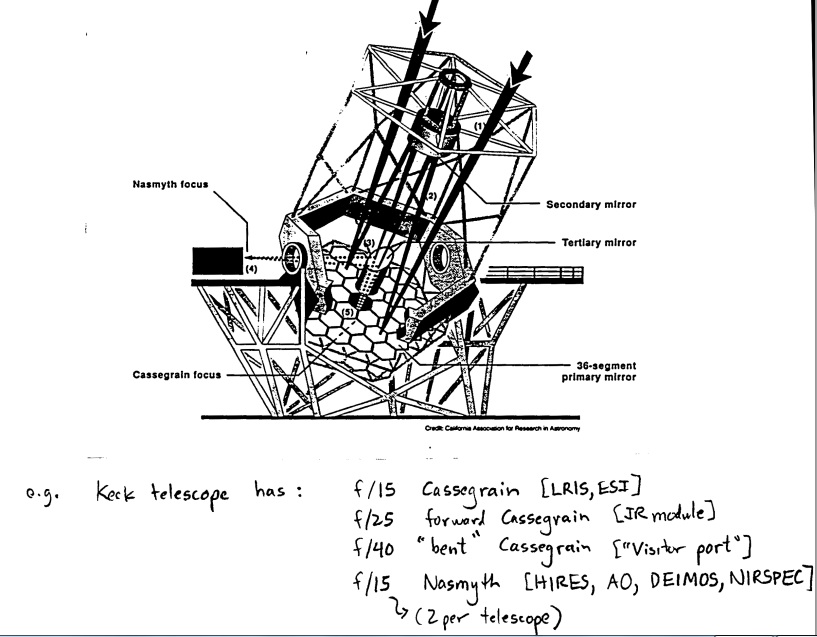 (1)
Nasmyth focus
(2)
Secondary mirror
(3)
Tertiary mirror
(4)
(5)
Cassegrain focus
36-segment
primary mirror
Credit: California Association for Research in Astronomy
e.g. Keck telescope has : f/15 Cassegrain [LRIS, ESI]
f/25 forward Cassegrain [IR module]
f/40 "bent" Cassegrain ["Visitor port"]
f/15 Nasmyth [HIRES, AO, DEIMOS, NIRSPEC]
(2 per telescope)